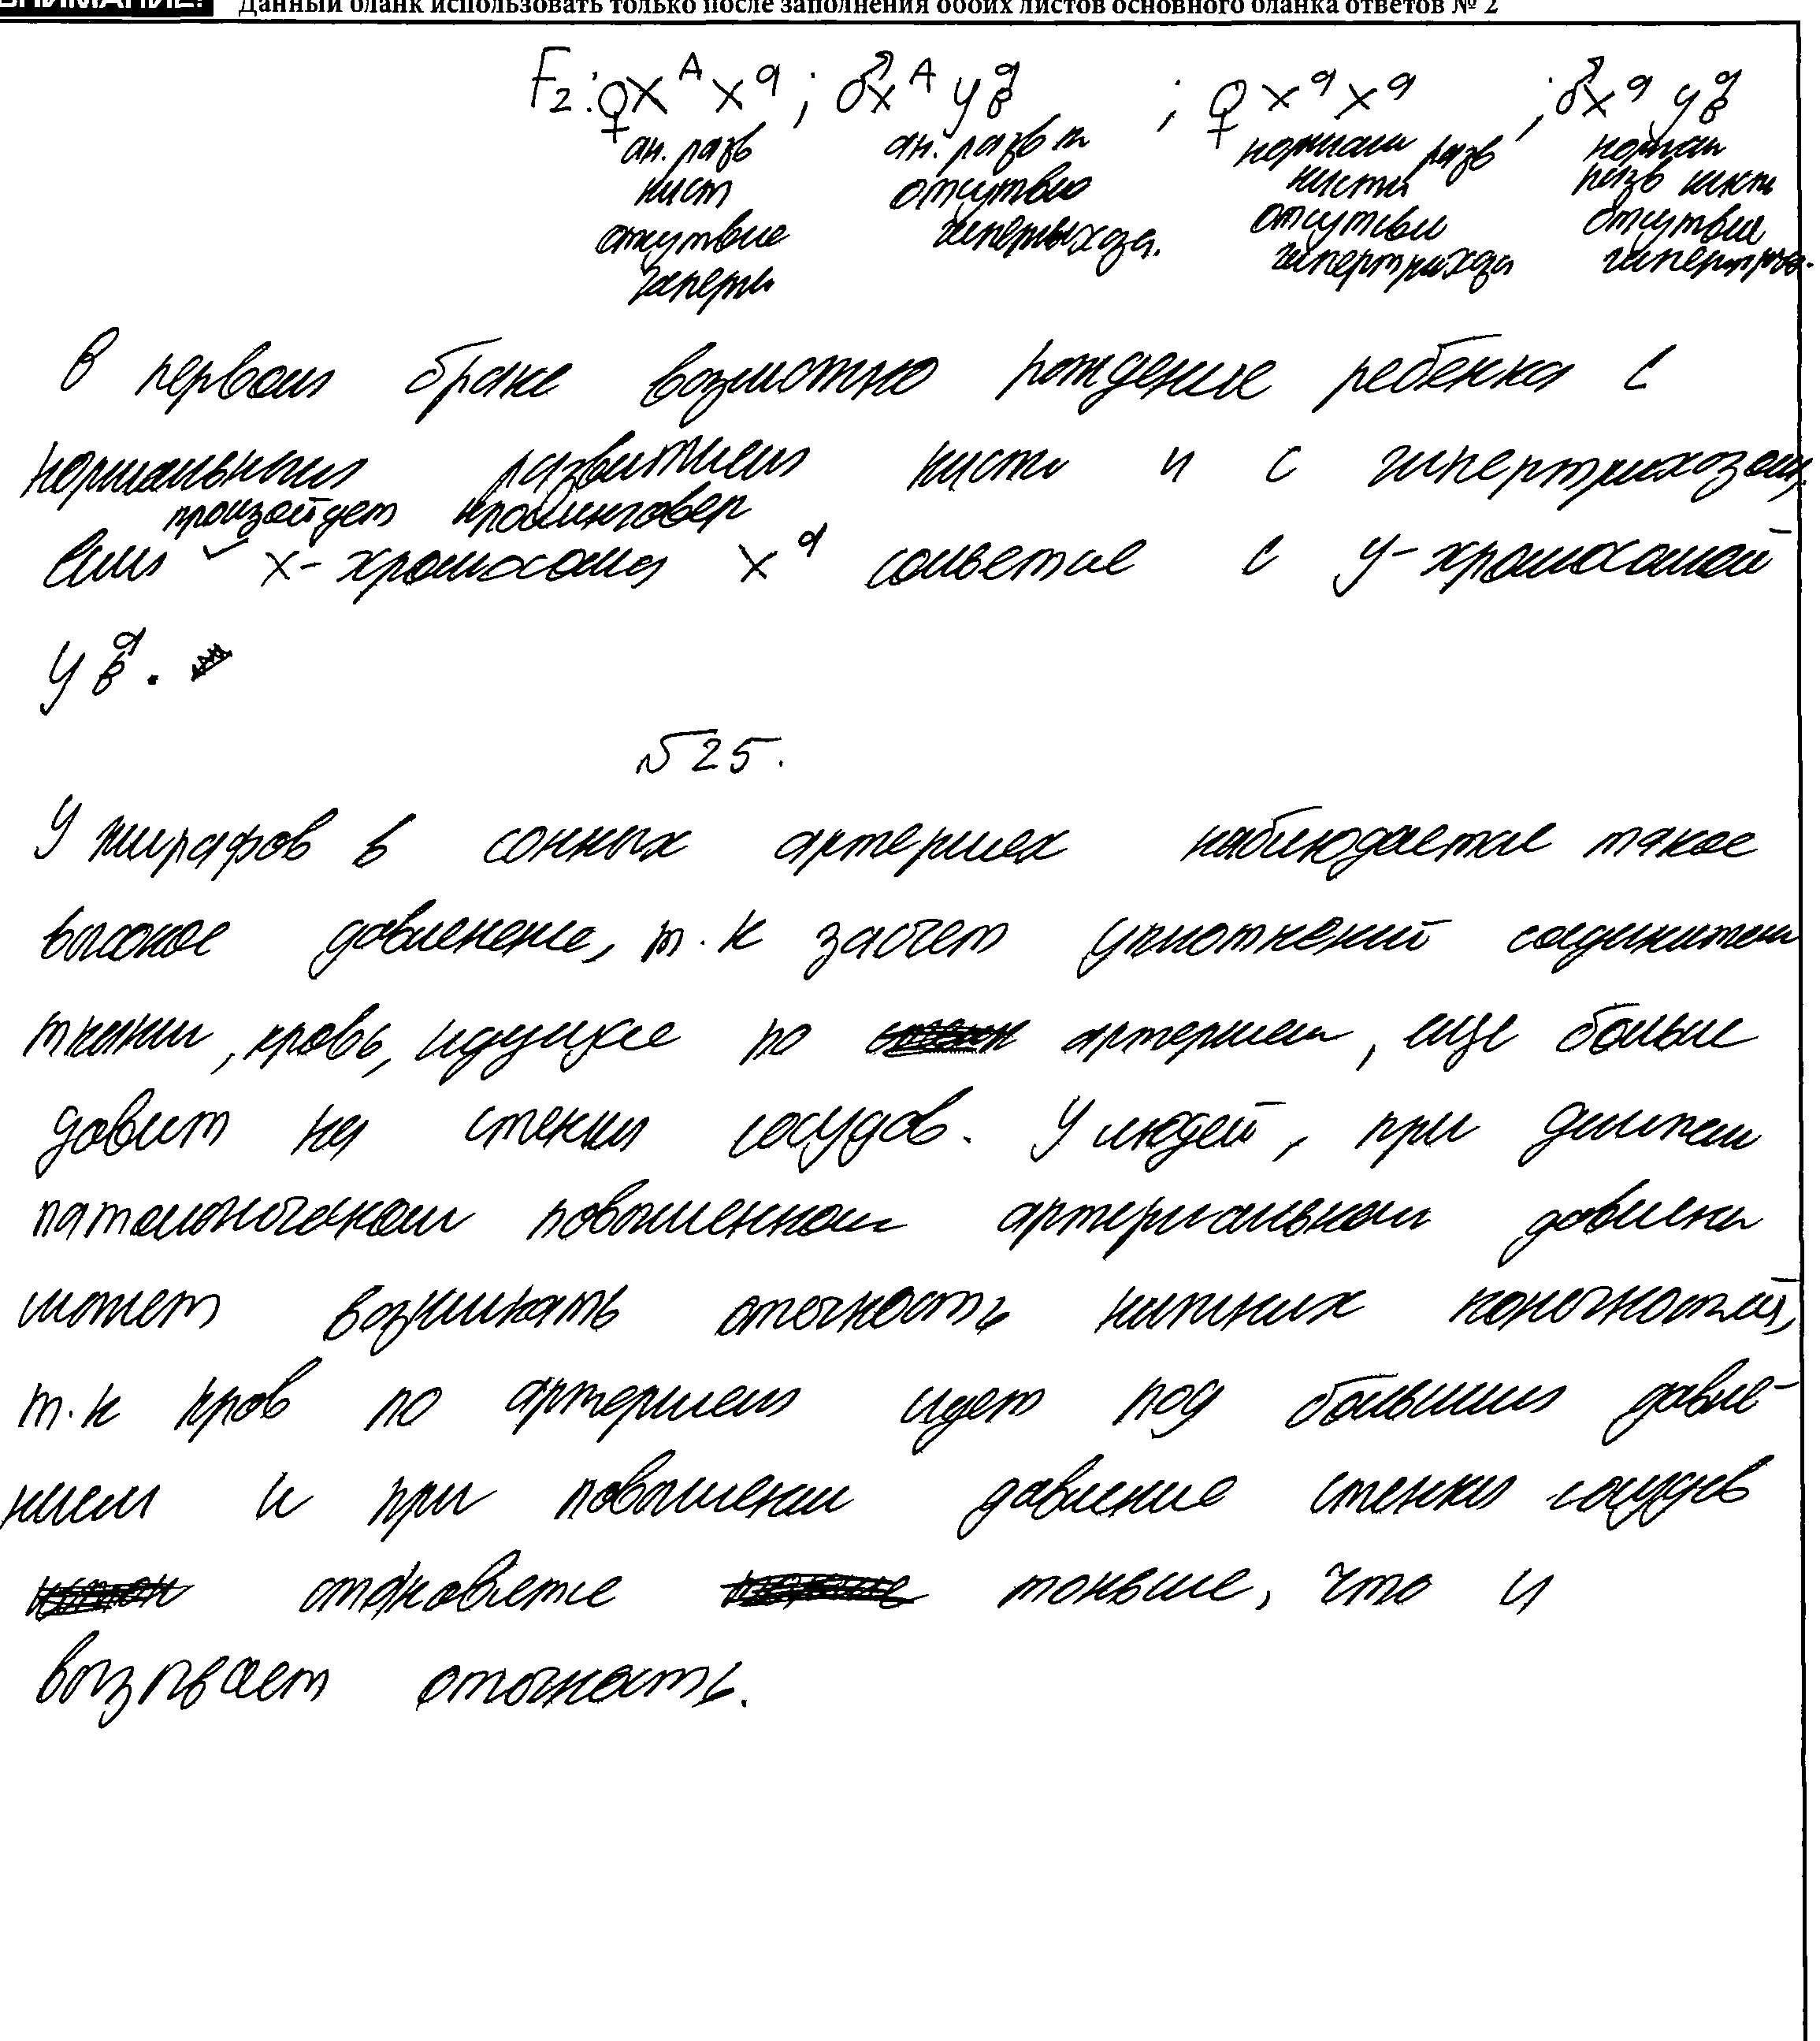 ВНИМАНИЕ! Данный бланк использовать только после заполнения обоих листов основного бланка ответов № 2
F₂: ♀XᴬXᵃ ; ♂Xᴬ Yᵃв ; ♀ Xᵃ Xᵃ ; ♂Xᵃ Yᵃв
ан. разв ан. разв ки нормальн разв нормал
кист отсутвие кисти разв кисти
отсутвие гипертрихоза. отсутви отсутвие
гиперти гипертрихоза гипертрихо.
В первом браке возмостно рождение ребенка с
нормальным развитием кисти и с гипертрихозом,
произойдет кроссинговер
если ✓ X-хромосома Xᵃ сольется с Y-хромосомой
Yᵃв.
№25.
У жирафов в сонных артериях наблюдается такое
высокое давление, т.к засчет уплотнений соединител
ткани, кровь, идущие по артериям, еще больше
давит на стенки сосудов. У людей, при длител
патологическом повышенном артериальном давлени
может возникать отечность нижних конечностей,
т.к кров по артериям идет под большим давле-
нием и при повышени давление стенки сосудов
становятся тоньше, что и
вызывает отечность.